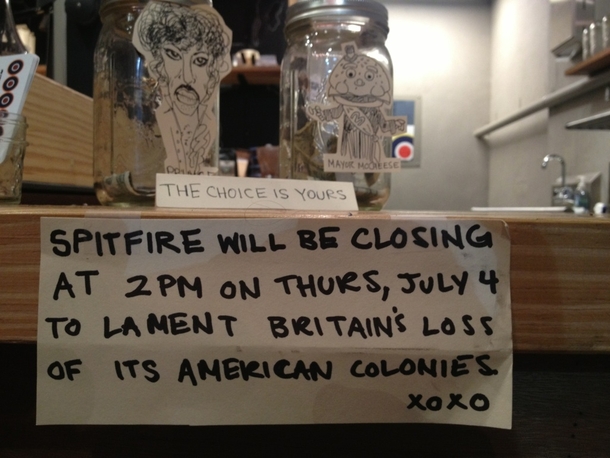 MAYOR MCCHEESE
THE CHOICE IS YOURS
SPITFIRE WILL BE CLOSING
AT 2PM ON THURS, JULY 4
TO LAMENT BRITAIN'S LOSS
OF ITS AMERICAN COLONIES.
XOXO